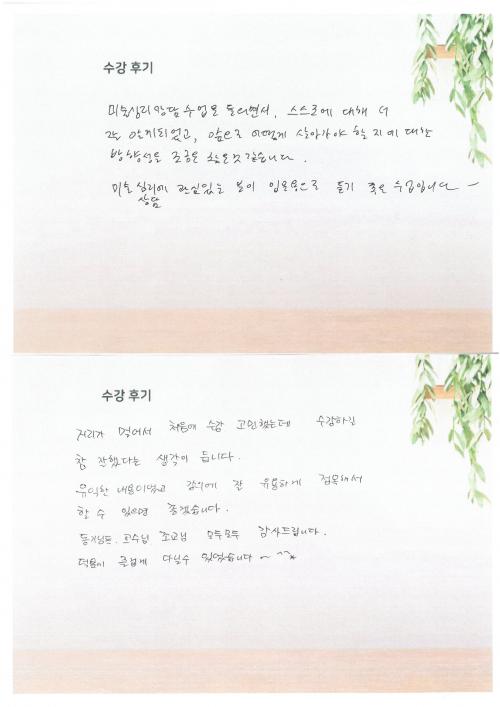 수강 후기
미술심리상담 수업을 들으면서, 스스로에 대해 더
잘 알게되었고, 앞으로 어떻게 살아가야 할 지에 대한
방향성을 조금은 찾은것 같습니다.
미술심리에 관심있는 분이 입문용으로 듣기 좋은 수업입니다~
상담
수강 후기
거리가 멀어서 처음에 수강 고민했는데 수강하길
참 잘했다는 생각이 듭니다.
유익한 내용이었고 강의에 잘 유용하게 접목해서
할 수 있으면 좋겠습니다.
동기님들, 교수님 조교님 모두모두 감사드립니다.
덕분에 즐겁게 다닐수 있었습니다~ ^^*